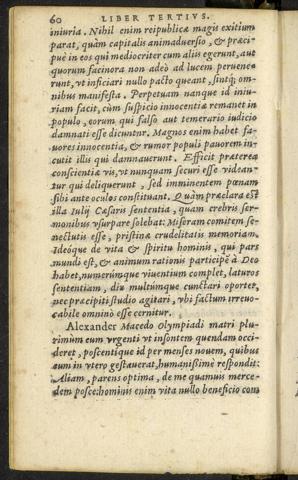 60 LIBER TERTIVS.
iniuria. Nihil enim reipublicæ magis exitium
parat, quàm capitalis animaduersio, & præci-
puè in eos qui mediocriter cum alijs egerunt, aut
quorum facinora non adeò ad lucem peruene
runt, vt inficiari nullo pacto queant, sintq; om-
nibus manifesta. Perpetuam nanque id iniu-
riam facit, cùm suspicio innocentiæ remanet in
populo, eorum qui falso aut temerario iudicio
damnati esse dicuntur. Magnos enim habet fa-
uores innocentia, & rumor populi pauorem in-
cutit illis qui damnauerunt. Efficit præterea
conscientiæ vis, vt nunquam securi esse videan-
tur qui deliquerunt, sed imminentem pœnam
sibi ante oculos constituant. Quàm præclara est
illa Iulij Cæsaris sententia, quam crebris ser-
monibus vsurpare solebat: Miseram comitem se-
nectutis esse, pristinæ crudelitatis memoriam.
Ideóque de vita & spiritu hominis, qui pars
mundi est, & animum rationis participē à Deo
habet, numerúmque viuentium complet, laturos
sententiam, diu multúmque cunctari oportet,
nec præcipiti studio agitari, vbi factum irreuo-
cabile omninò esse cernitur.
Alexander Macedo Olympiadi matri plu-
rimùm eum vrgenti vt insontem quendam occi-
deret, poscentique id per menses nouem, quibus
eum in vtero gestauerat, humanißimè respondit:
Aliam, parens optima, de me quamuis merce-
dem posce: hominis enim vita nullo beneficio com